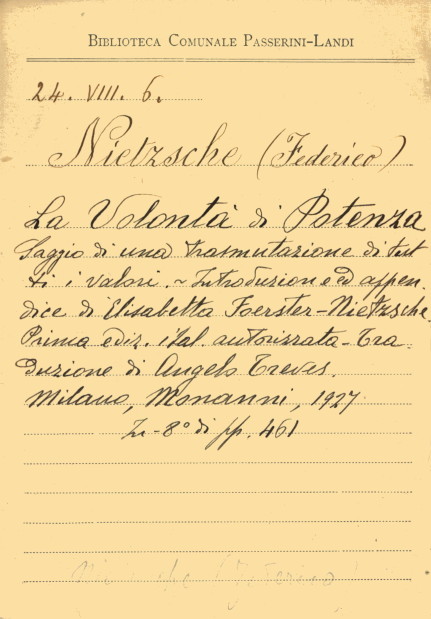 BIBLIOTECA COMUNALE PASSERINI-LANDI
24. VIII. 6.
Nietzsche (Federico)
La Volontà di Potenza
Saggio di una trasmutazione di tut
ti i valori. - Introduzione ed appen.
dice di Elisabetta Foerster-Nietzsche.
Prima ediz. ital. autorizzata - Tra
duzione di Angelo Treves.
Milano, Monanni, 1927
In-8° di pp. 461